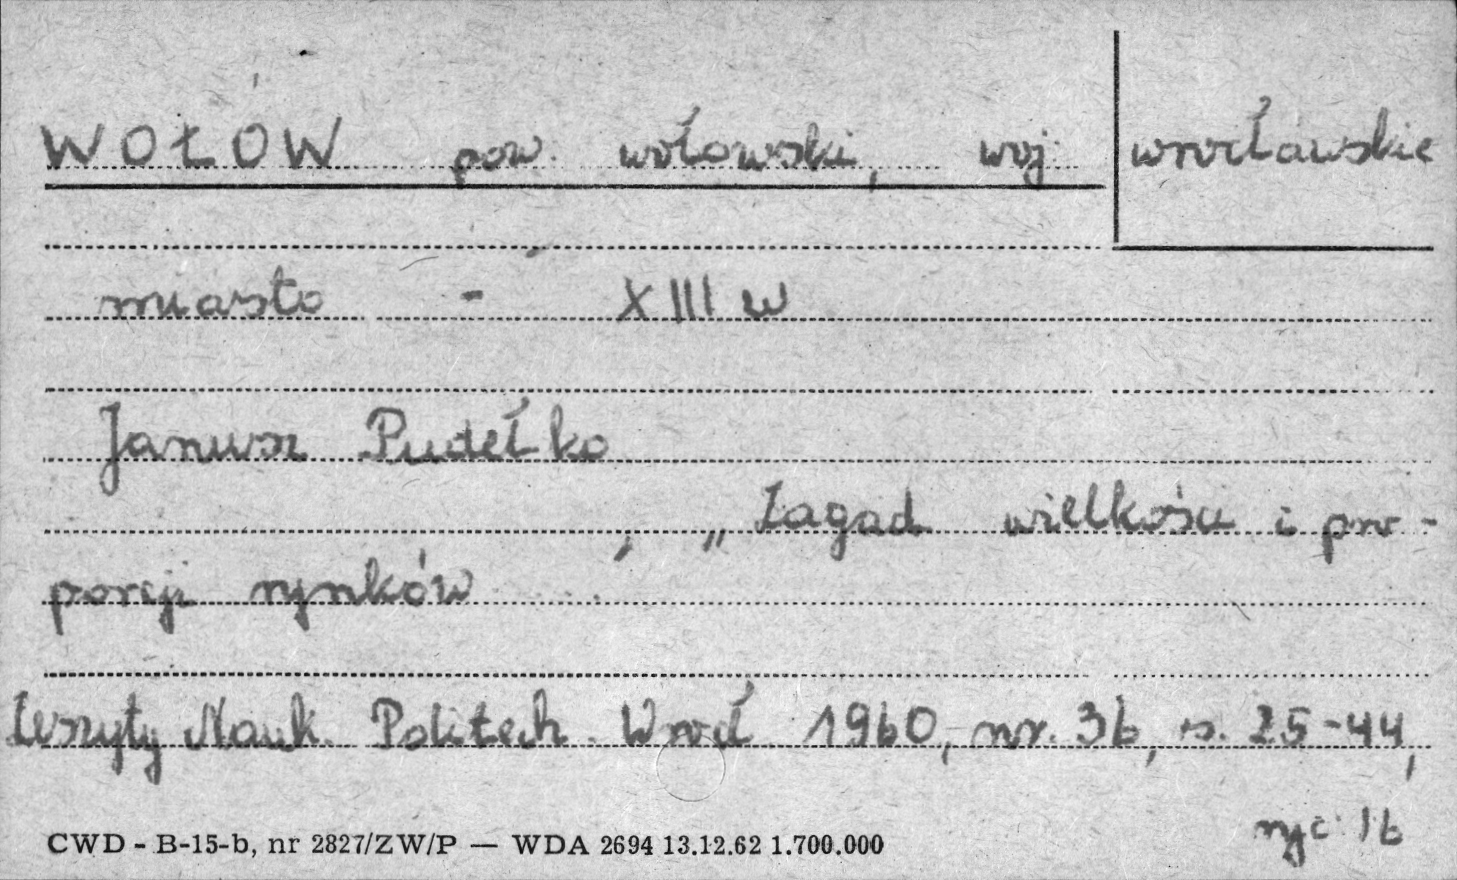 WOŁÓW pow. wołowski, woj. wrocławskie
miasto - XIII w
Janusz Pudełko
, „Zagad wielkości i pro-
porcji rynków ...
Zeszyty Nauk. Politech. Wrocł. 1960, nr. 36, s. 25-44,
ryc 16
CWD - B-15-b, nr 2827/ZW/P — WDA 2694 13.12.62 1.700.000